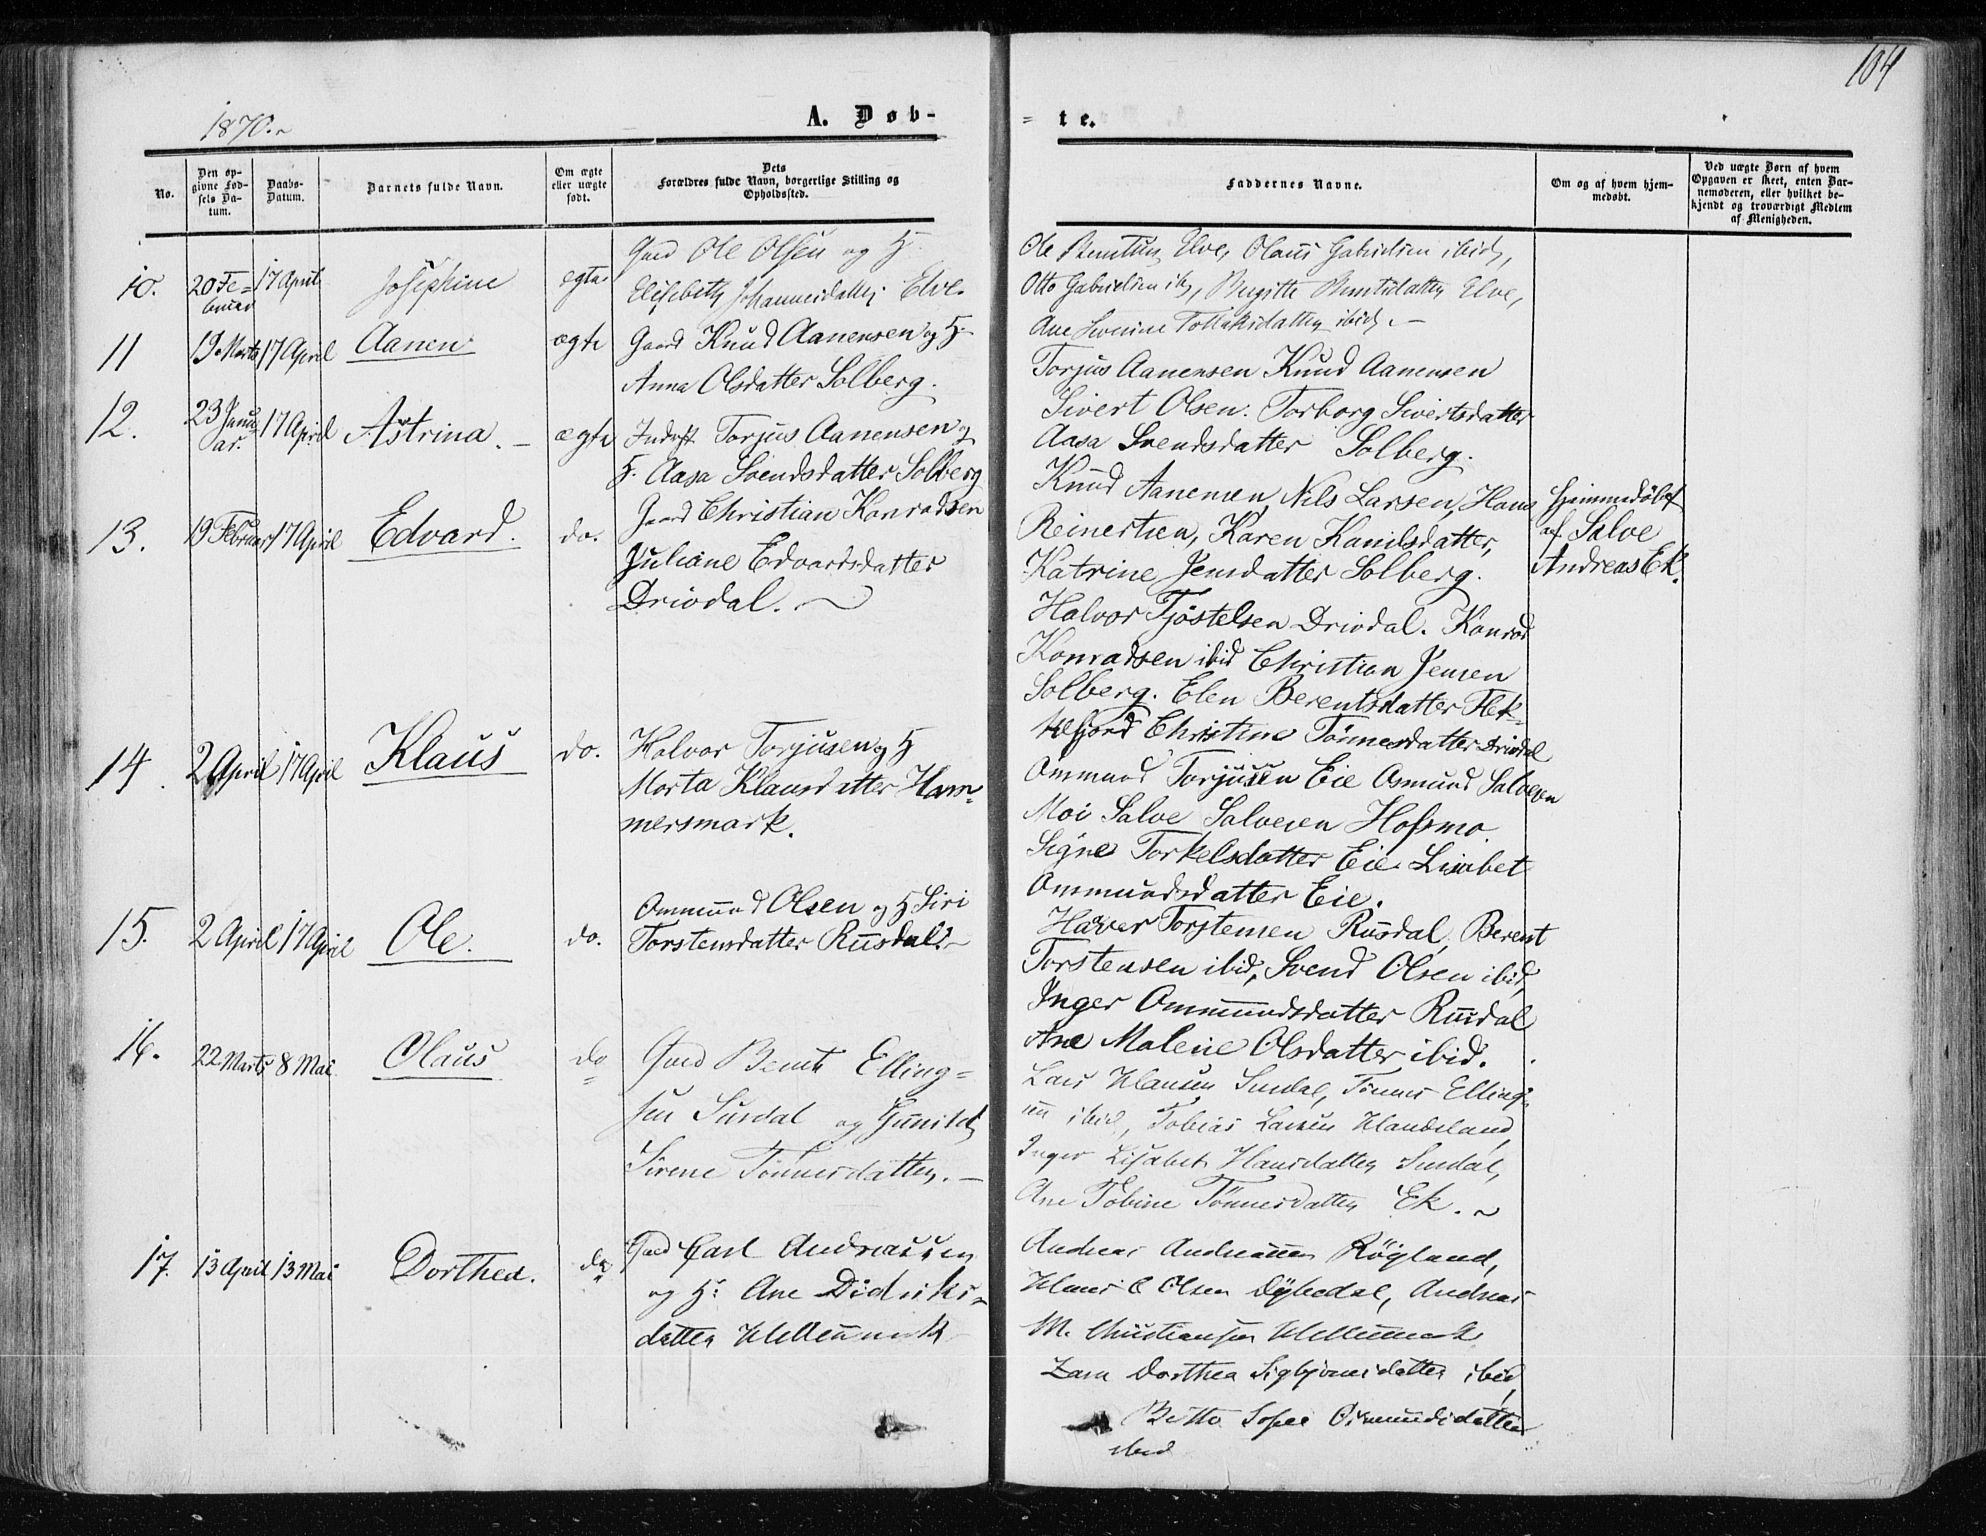 104
1870.
A. Døb-
= te.
No.
Den op-
givne Fød-
sels Da-
tum.
Daabs-
Datum.
Barnets fulde Navn.
Om ægte
eller uægte
født.
Dets
Forældres fulde Navn, borgerlige Stilling og
Opholdssted.
Faddernes Navne.
Om og af hvem hjem-
medøbt.
Ved uægte Børn af hvem
Opgaven er skeet, enten Bar-
nemoderen, eller hvilket be-
kjendt og troværdigt Medlem
af Menigheden.
10.
20 Fe-
bruar
17 April
Josephine
ægte
Gaard Ole Olsen og H.
Elisebeth Johannesdatter Elve.
Ole Elve, Olaus Gabrielsen ibid,
Otto Gabrielsen ib, Birgitte Elve,
Ane Severine Tollaksdatter ibid. -
11
19 Marts
17 April
Aanen
ægte
Gaard Knud Aanensen og H.
Anna Olsdatter Solberg.
Torjus Aanensen Knud Aanensen
Sivert Olsen. Torborg Sivertsdatter
Aasa Svendsdatter Solberg.
12.
23 Janu-
ar.
17 April
Astrina. -
ægte
Inderst Torjus Aanensen og
H. Aasa Svendsdatter Solberg
Knud Aanensen, Nils Larsen, Hans
Reinertsen, Karen Kanilsdatter,
Katrine Jensdatter Solberg.
13.
19 Februar
17 April
Edvard.
do.
Gaard Christian Konradsen
Juliane Edvardsdatter
Drivdal. ~
Halvor Tjöstelsen Drivdal. Konrad
Konradsen ibid Christian Jensen
Solberg. Elen Berentsdatter Flek-
kefjord Christine Tönnesdatter Drivdal
Hjemmedöbt
af Salve
Andreas Ek.
14.
2 April
17 April
Klaus
do.
Halvor Torjusen og H
Marta Klausdatter Ham-
mersmark.
Ommund Torjusen Eie Osmund Salvesen
Moi Salve Salvesen Hofsmo.
Signe Torkelsdatter Eie. Lisabet
Ommundsdatter Eie.
15.
2 April
17 April
Ole.
do.
Ommund Olsen og H Siri
Torstensdatter Rusdal -
Haaver Torstensen Rusdal, Berent
Torstensen ibid, Svend Olsen ibid,
Inger Ommundsdatter Rusdal
Ane Malene Olsdatter ibid.
16.
22 Marts
8 Mai
Olaus
do
Gaard Bernt Elling-
sen Surdal og Gunild
Sirene Tønnesdatter. -
Lars Klausen Surdal, Tønnes Elling-
sen ibid, Tobias Larsen Klandsland,
Inger Lisabet Hansdatter Surdal,
Ane Tobine Tønnesdatter Ek. ~
17.
13 April
13 Mai
Dorthea.
do
Gaard Carl Andreassen
og H: Ane Didriks-
datter
Andreas Andreassen Røgland,
Klaus C Olsen Dybedal, Andreas
M. Christiansen
Zara Dorthea Sigbjørnsdatter ibid,
Britta Sofie Osmundsdatter
ibid